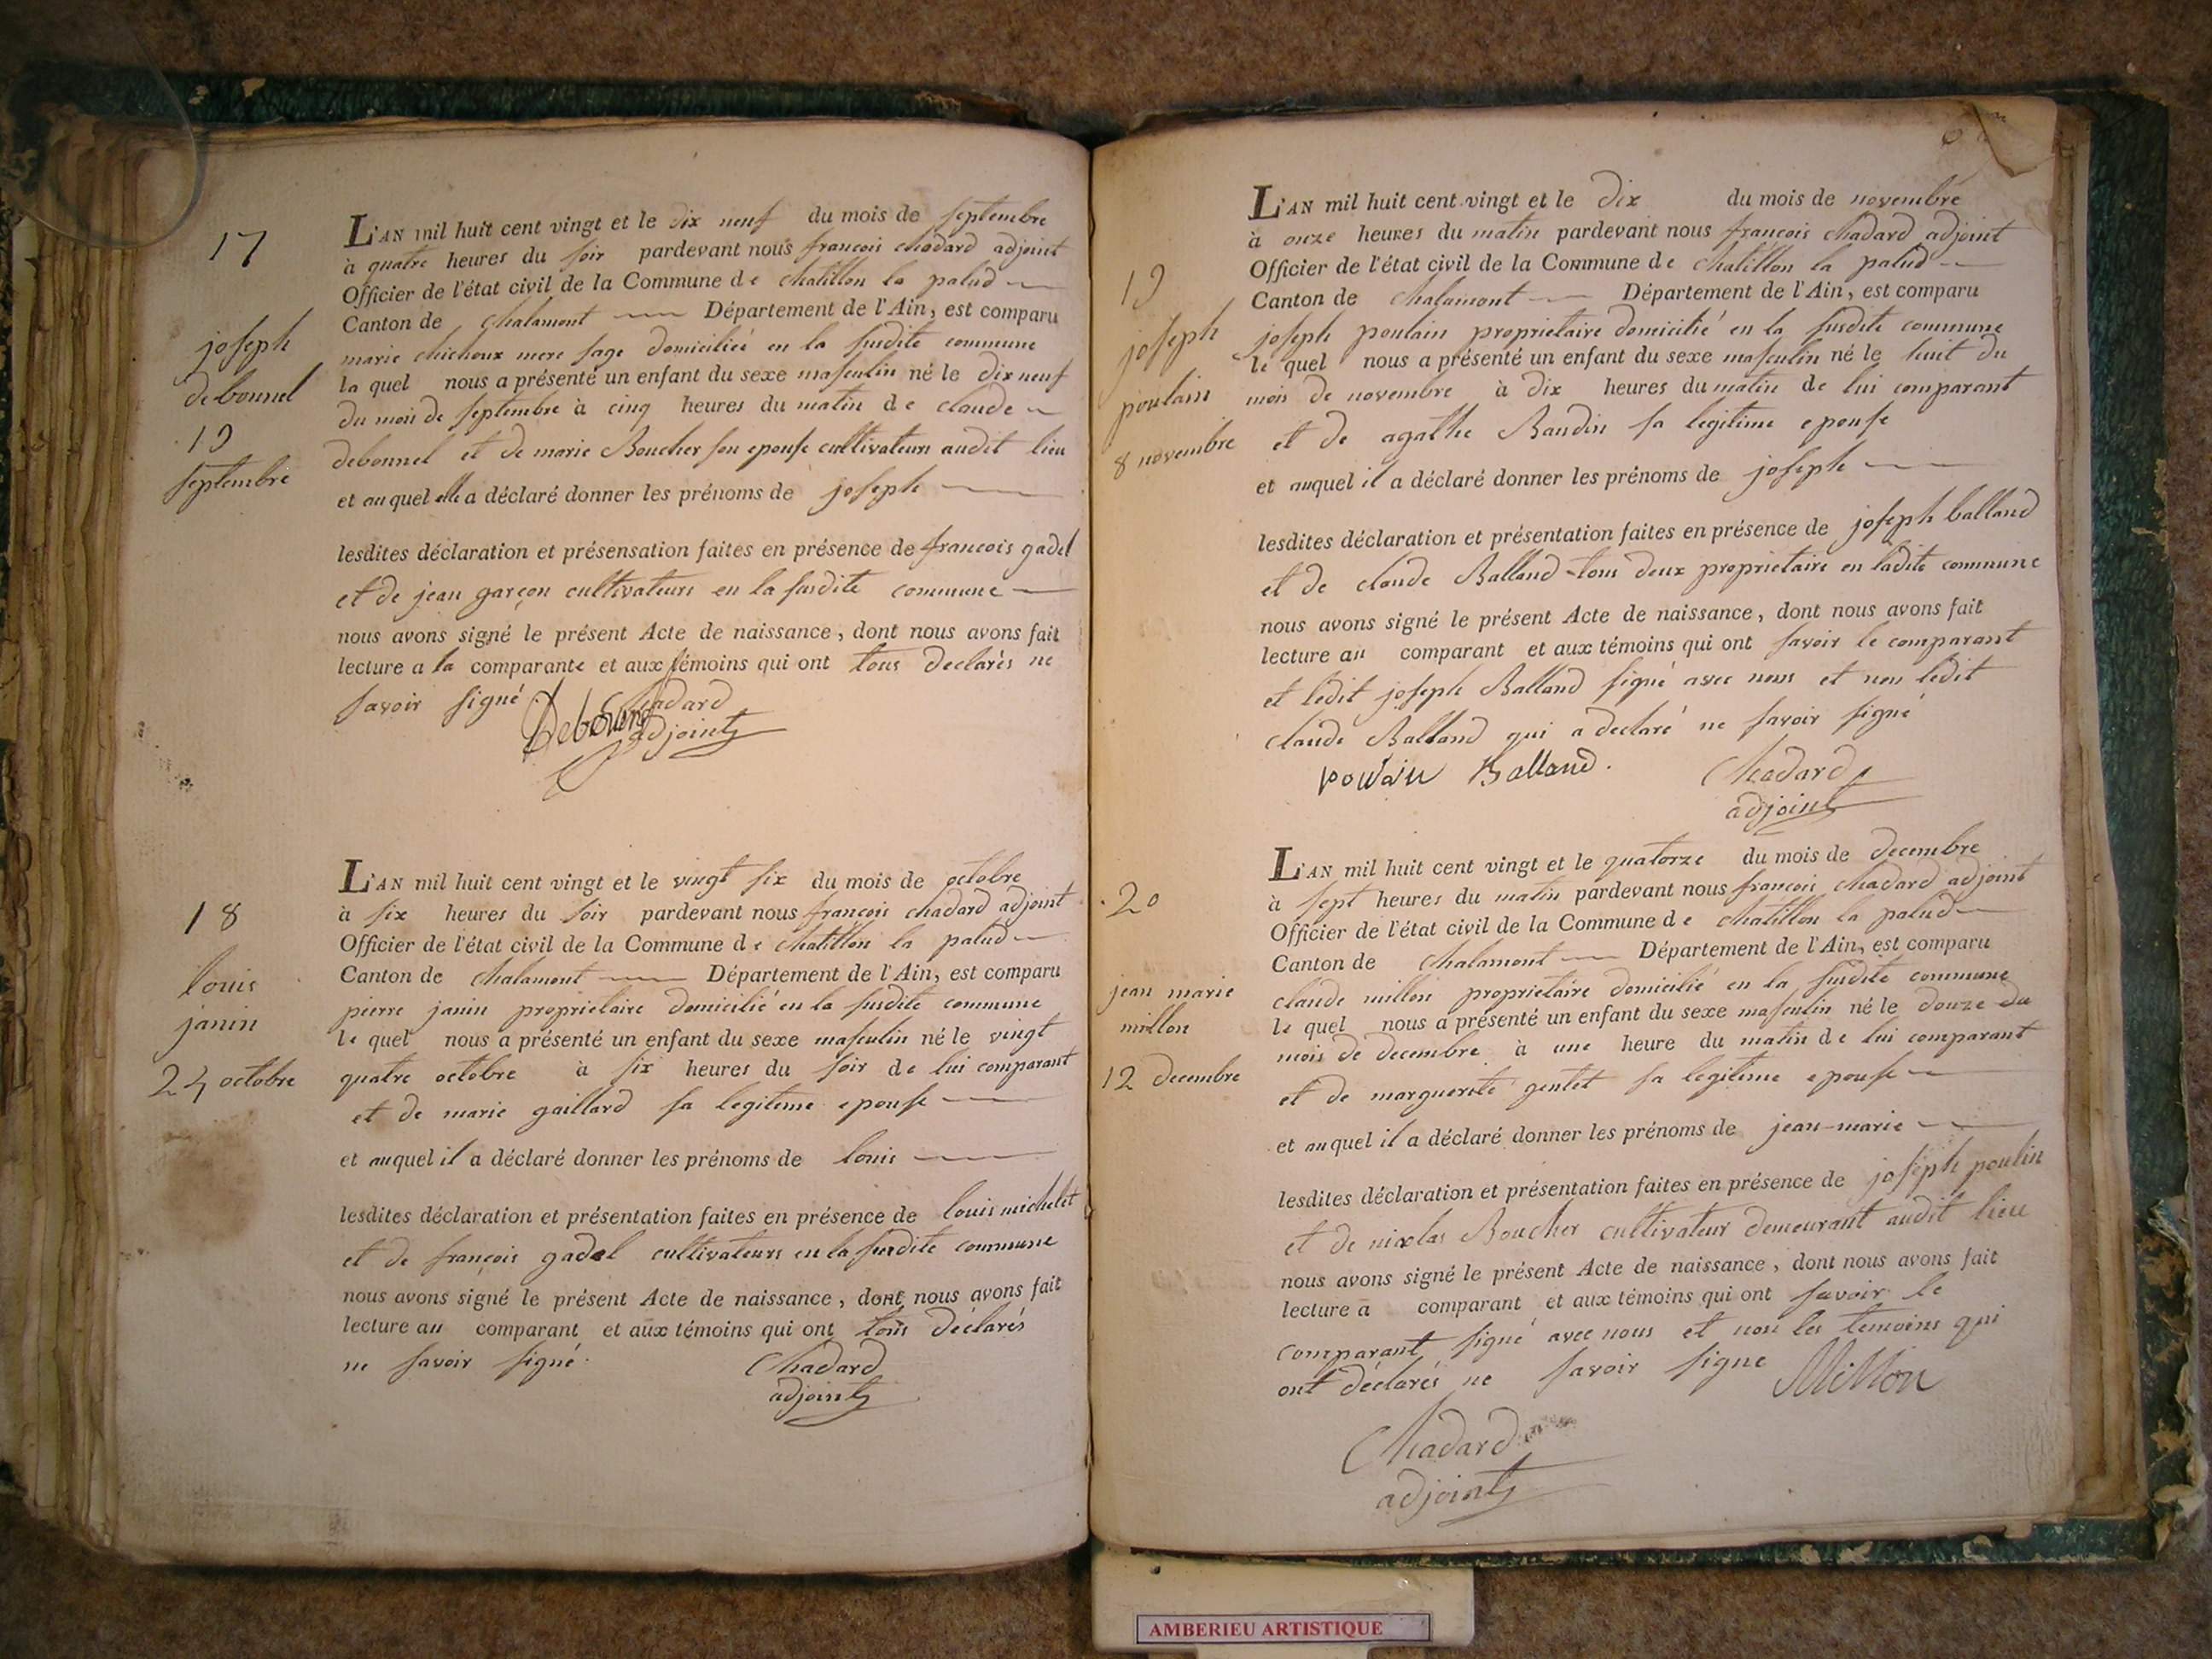 17
joseph
debonnel
19
septembre
L'AN mil huit cent vingt et le dix neuf du mois de septembre
à quatre heures du soir pardevant nous francois chadard adjoint
Officier de l'état civil de la Commune de chatillon la palud
Canton de chalamont Département de l'Ain, est comparu
marie chichoux mere sage domiciliée en la susdite commune
la quel nous a présenté un enfant du sexe masculin né le dix neuf
du mois de septembre à cinq heures du matin de claude
debonnel et de marie Boucher son epouse cultivateurs audit lieu
et auquel elle a déclaré donner les prénoms de joseph
lesdites déclaration et présensation faites en présence de francois gadel
et de jean garçon cultivateurs en la susdite commune
nous avons signé le présent Acte de naissance, dont nous avons fait
lecture a la comparante et aux témoins qui ont tous declarés ne
savoir signé
Chadard
adjoint
18
louis
janin
24 octobre
L'AN mil huit cent vingt et le vingt six du mois de octobre
à six heures du soir pardevant nous françois chadard adjoint
Officier de l'état civil de la Commune de chatillon la palud
Canton de chalamont Département de l'Ain, est comparu
pierre janin proprietaire domicilié en la susdite commune
le quel nous a présenté un enfant du sexe masculin né le vingt
quatre octobre à six heures du soir de lui comparant
et de marie gaillard sa legitime epouse
et auquel il a déclaré donner les prénoms de louis
lesdites déclaration et présentation faites en présence de louis michelet
et de françois gadel cultivateurs en la susdite commune
nous avons signé le présent Acte de naissance, dont nous avons fait
lecture au comparant et aux témoins qui ont tous déclarés
ne savoir signé.
Chadard
adjoint
19
joseph
poulain
8 novembre
L'AN mil huit cent vingt et le dix du mois de novembre
à onze heures du matin pardevant nous francois chadard adjoint
Officier de l'état civil de la Commune de chatillon la palud
Canton de chalamont Département de l'Ain, est comparu
joseph poulain proprietaire domicilié en la susdite commune
le quel nous a présenté un enfant du sexe masculin né le huit du
mois de novembre à dix heures du matin de lui comparant
et de agathe Baudin sa legitime epouse
et auquel il a déclaré donner les prénoms de joseph
lesdites déclaration et présentation faites en présence de joseph balland
et de claude Balland tous deux proprietaire en ladite commune
nous avons signé le présent Acte de naissance, dont nous avons fait
lecture au comparant et aux témoins qui ont savoir le comparant
et ledit joseph Balland signé avec nous et non ledit
claude Balland qui a declaré ne savoir signé
poulain Balland. Chadard
adjoint
20
jean marie
millon
12 decembre
L'AN mil huit cent vingt et le quatorze du mois de decembre
à sept heures du matin pardevant nous francois chadard adjoint
Officier de l'état civil de la Commune de chatillon la palud
Canton de chalamont Département de l'Ain, est comparu
claude millon proprietaire domicilié en la susdite commune
le quel nous a présenté un enfant du sexe masculin né le douze du
mois de decembre à une heure du matin de lui comparant
et de marguerite gentet sa legitime epouse
et auquel il a déclaré donner les prénoms de jean-marie
lesdites déclaration et présentation faites en présence de joseph poulin
et de nicolas Boucher cultivateur demeurant audit lieu
nous avons signé le présent Acte de naissance, dont nous avons fait
lecture a comparant et aux témoins qui ont savoir le
comparant signé avec nous et non les temoins qui
ont déclarés ne savoir signe Millon
Chadard
adjoint
AMBERIEU ARTISTIQUE